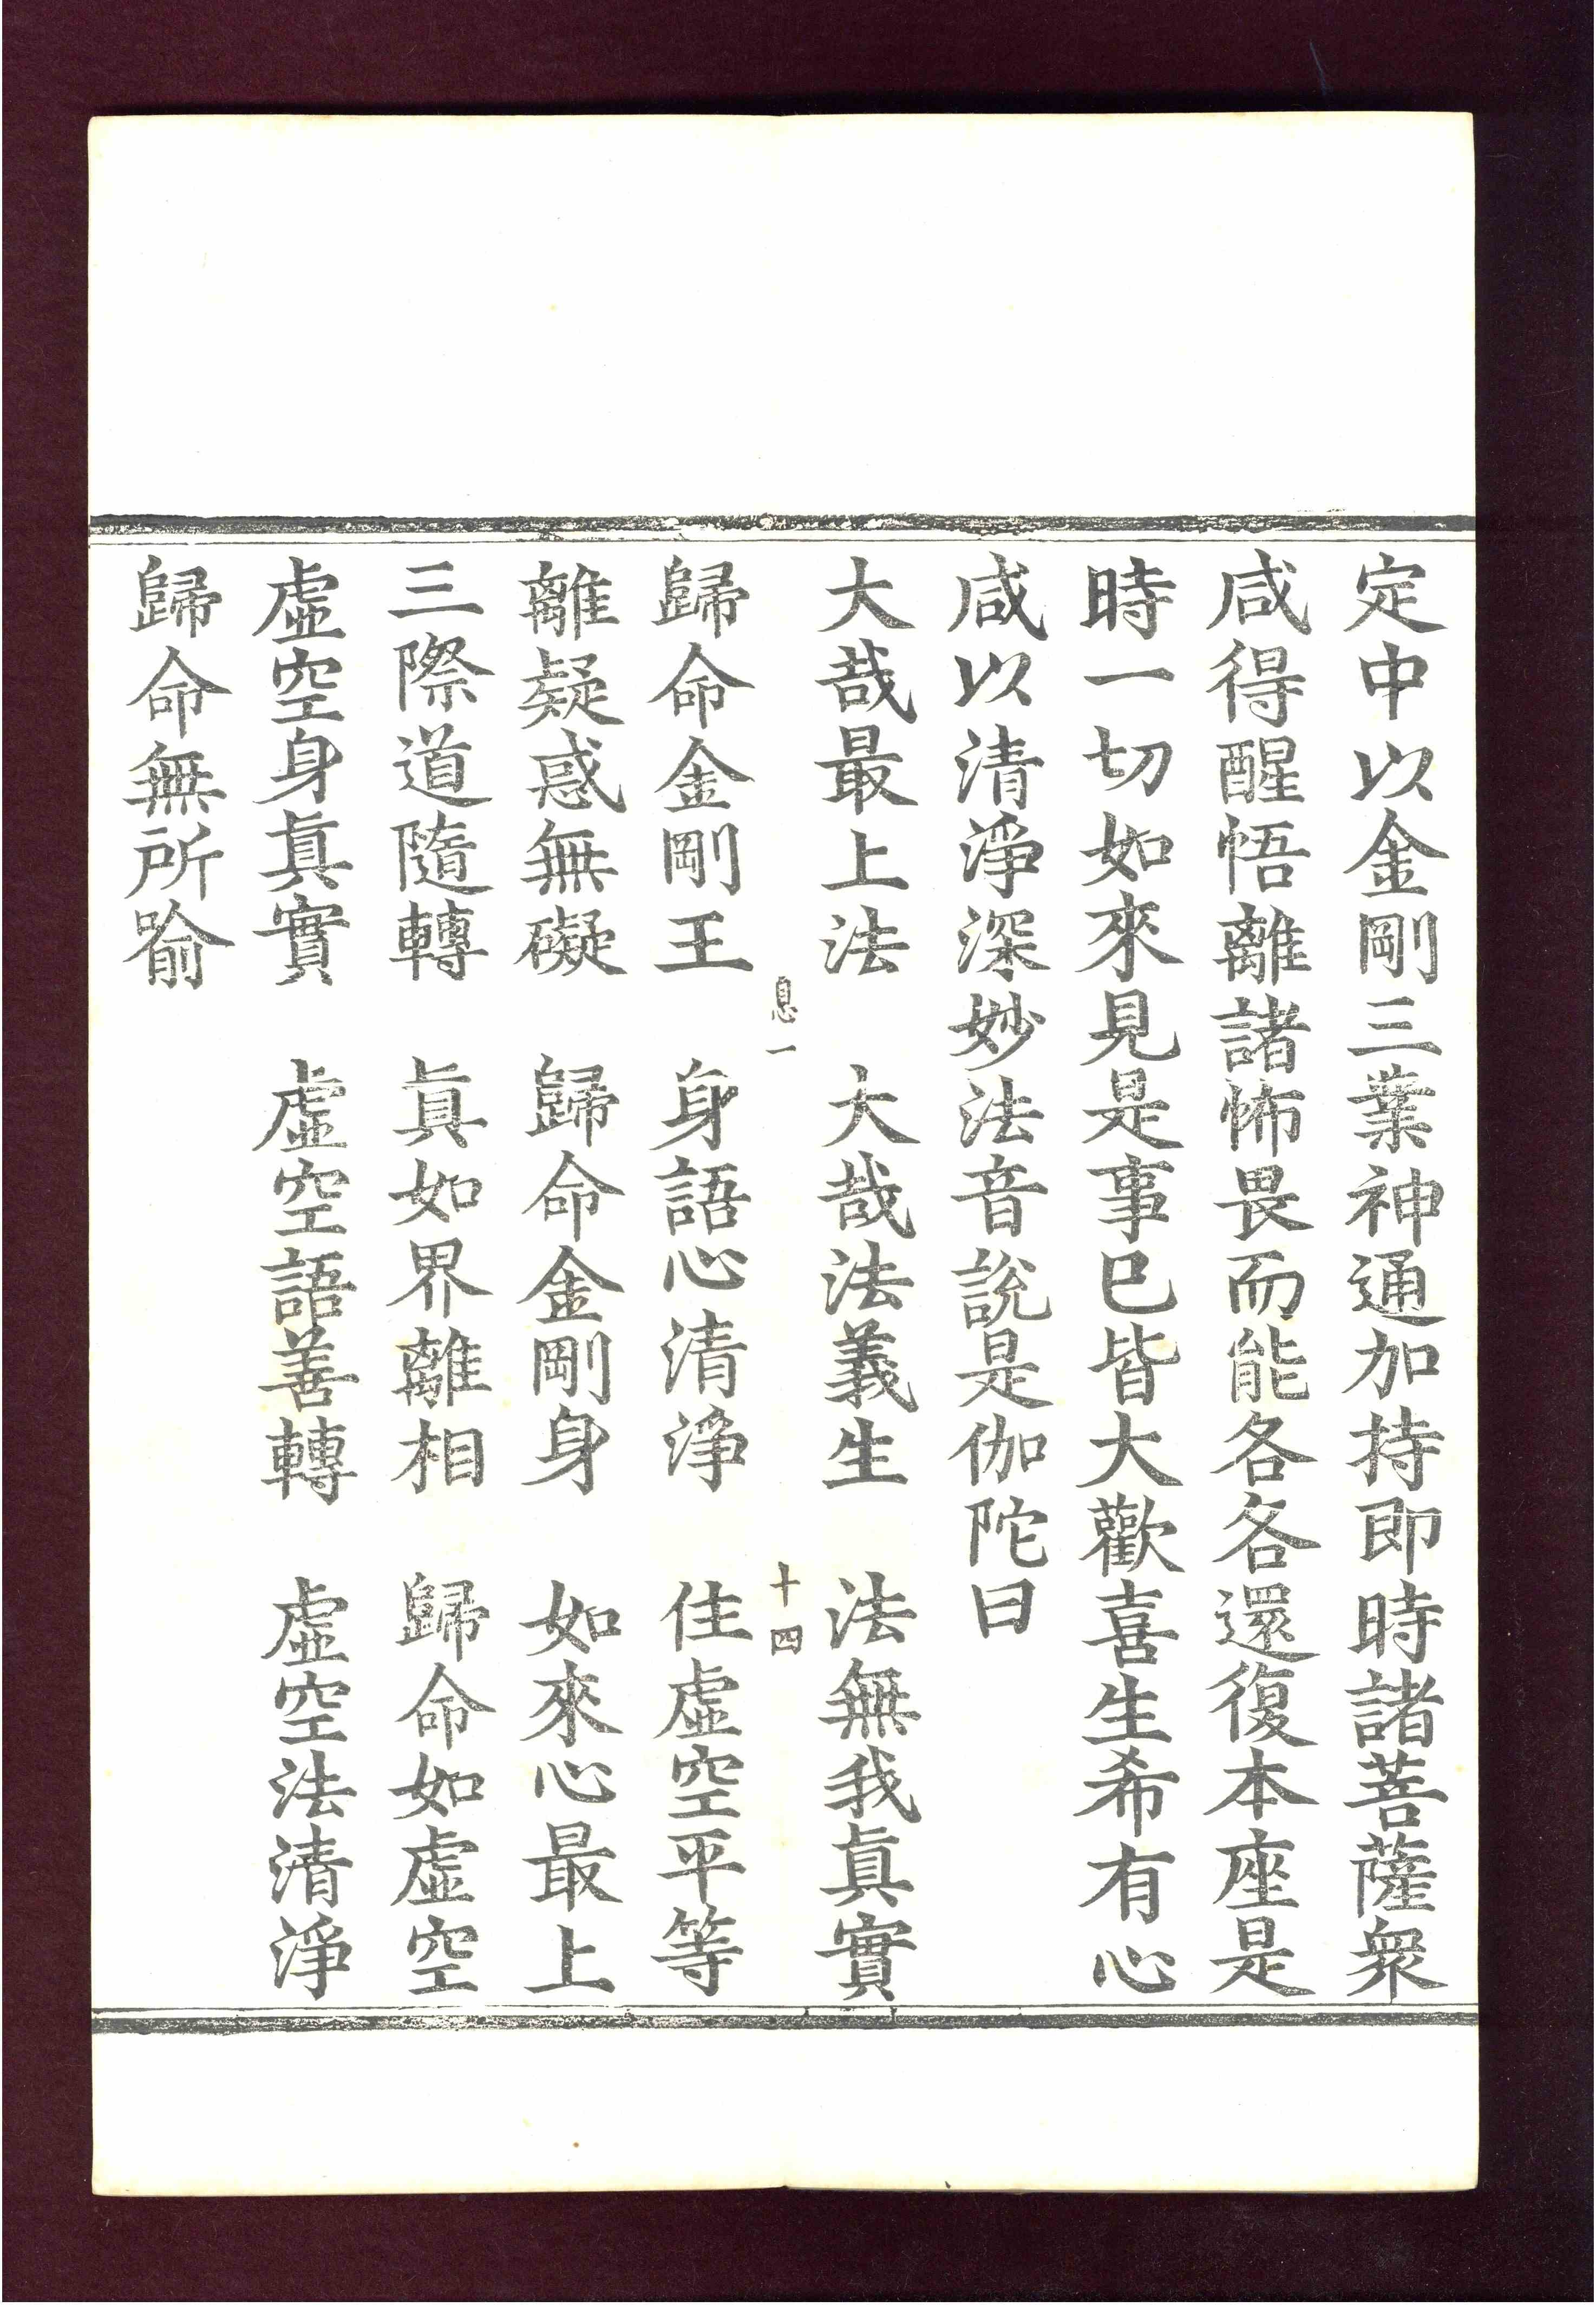 定中以金剛三業神通加持即時諸菩薩衆
咸得醒悟離諸怖畏而能各各還復本座是
時一切如來見是事已皆大歡喜生希有心
咸以清淨深妙法音說是伽陀曰
大哉最上法　大哉法義生　法無我眞實
息一　十四
歸命金剛王　身語心清淨　住虛空平等
離疑惑無礙　歸命金剛身　如來心最上
三際道隨轉　眞如界離相　歸命如虛空
虛空身眞實　虛空語善轉　虛空法清淨
歸命無所喻